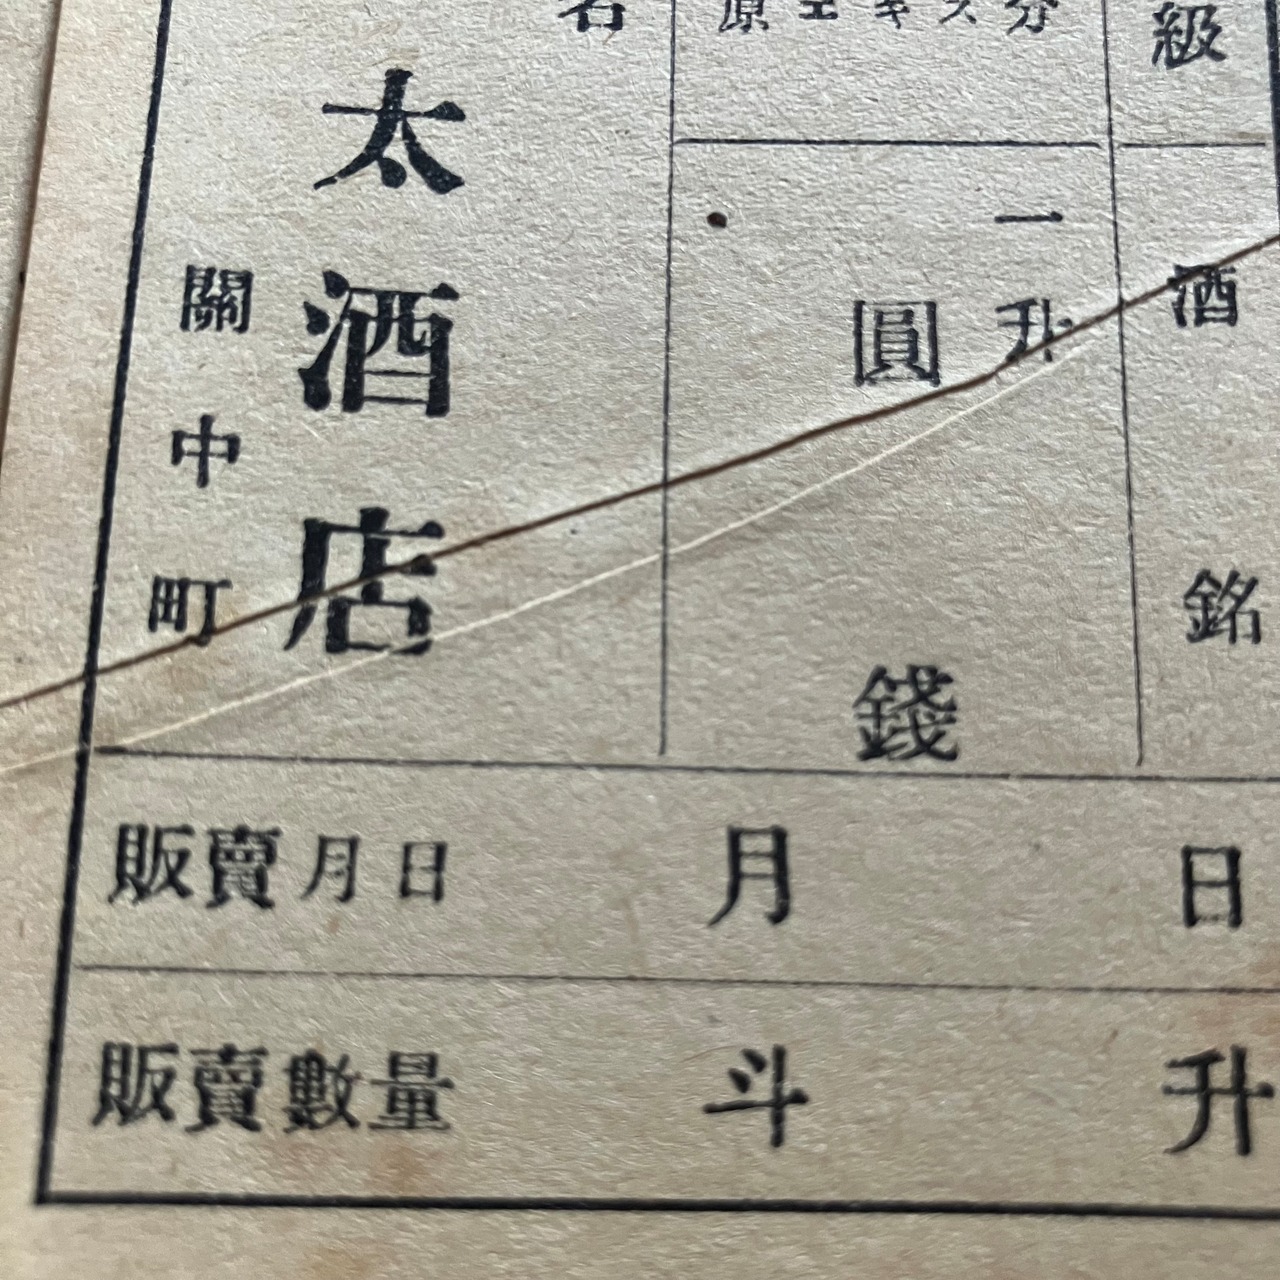 級
酒
銘
原エキス分
一升
圓
錢
名
太酒店
關中町
販賣月日 月 日
販賣數量 斗 升